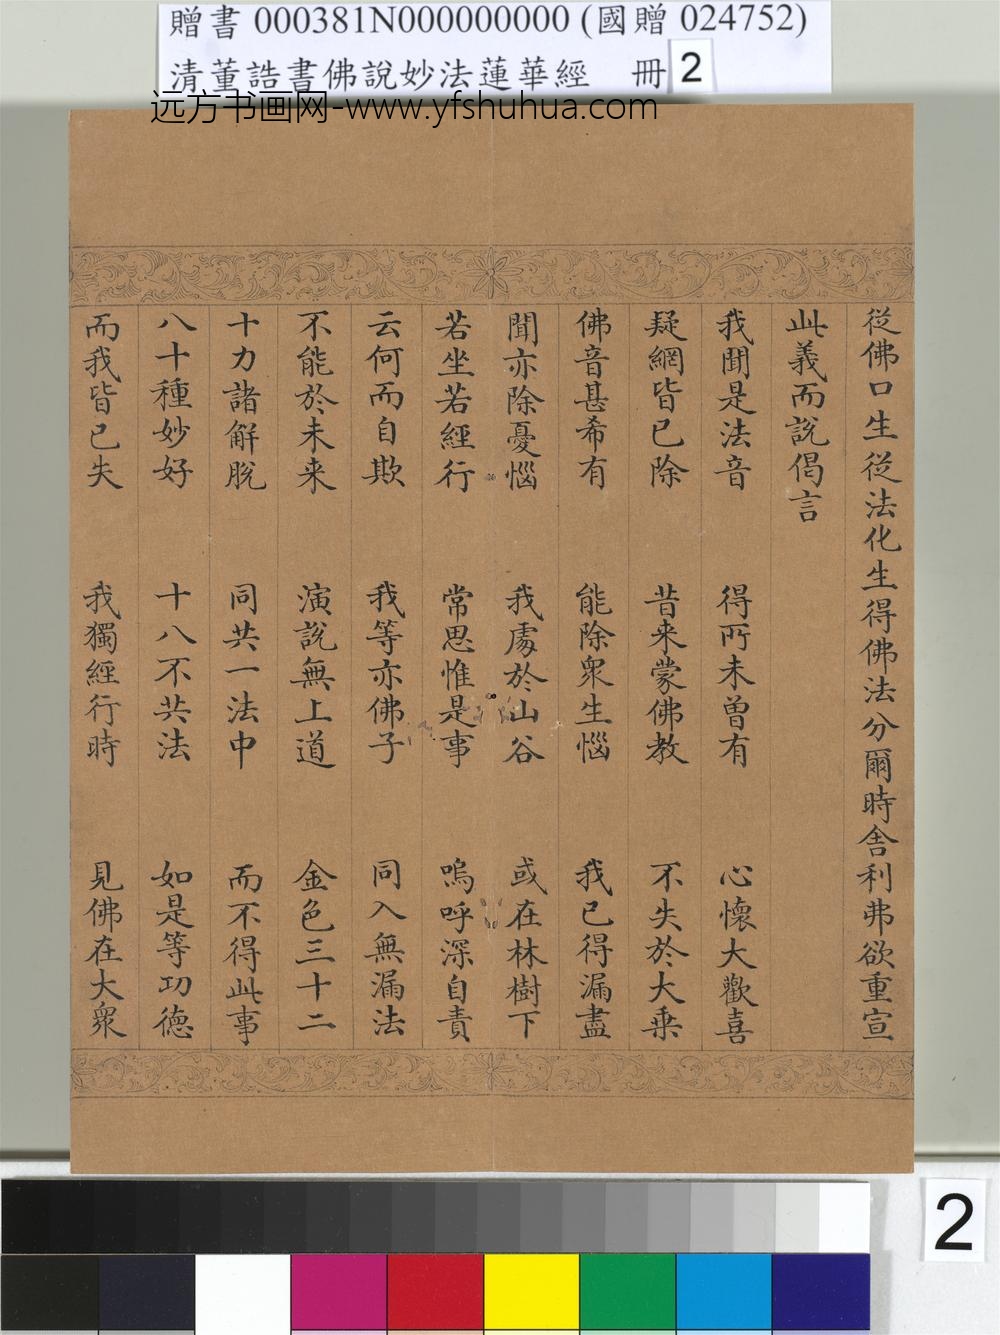 贈書 000381N000000000 (國贈 024752)
清董誥書佛說妙法蓮華經 冊 2
远方书画网-www.yfshuhua.com
從佛口生從法化生得佛法分爾時舍利弗欲重宣
此義而說偈言
我聞是法音 得所未曾有 心懷大歡喜
疑網皆已除 昔来蒙佛教 不失於大乗
佛音甚希有 能除衆生惱 我已得漏盡
聞亦除憂惱 我處於山谷 或在林樹下
若坐若經行 常思惟是事 嗚呼深自責
云何而自欺 我等亦佛子 同入無漏法
不能於未来 演說無上道 金色三十二
十力諸解脫 同共一法中 而不得此事
八十種妙好 十八不共法 如是等功德
而我皆已失 我獨經行時 見佛在大衆
2